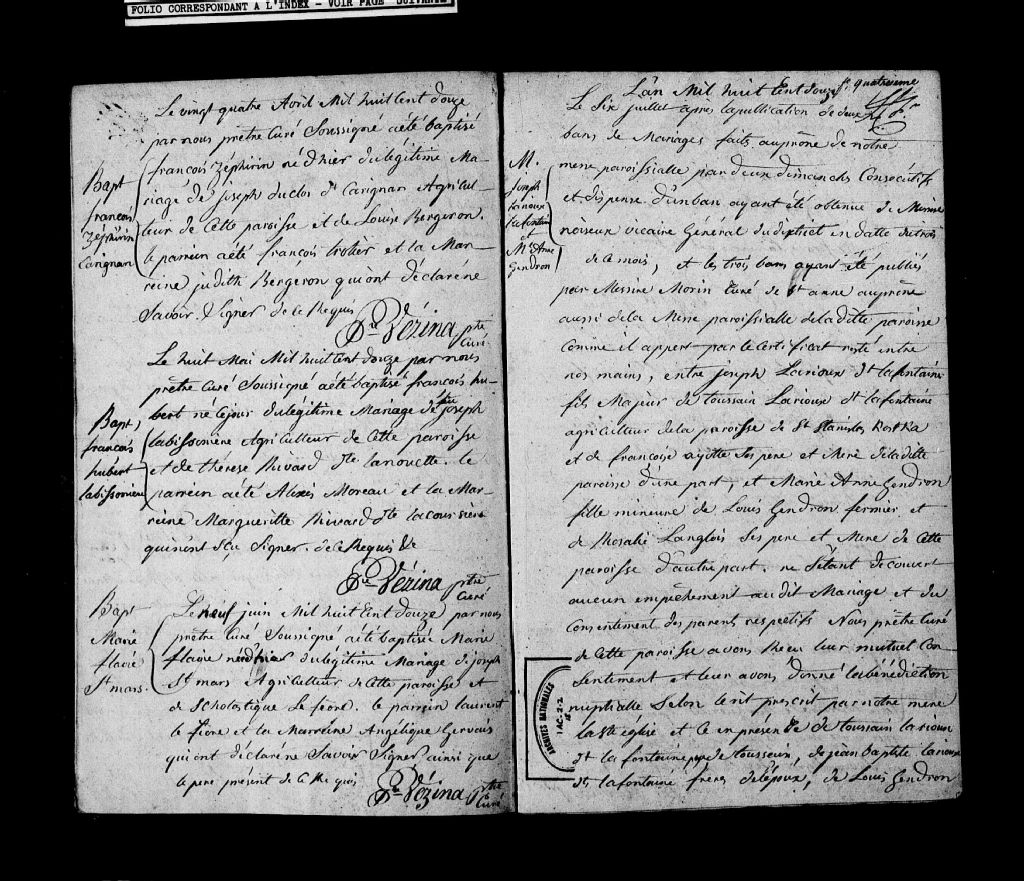 FOLIO CORRESPONDANT A L'INDEX - VOIR PAGE SUIVANTE
Le vingt quatre Avril Mil huit Cent douze
par nous prêtre Curé Soussigné a été baptisé
françois Zéphirin né d'hier du légitime Ma-
riage de Joseph duclos dt Carignan Agricul-
teur de Cette paroisse et de Louise Bergeron.
le parrein a été françois trotier et la Mar-
reine judith Bergéron qui ont déclaré ne
Savoir Signer de ce Requis
Vézina ptre
Curé
Bapt
françois
Zéphirin
Carignan
Le huit Mai Mil huit Cent douze par nous
prêtre Curé Soussigné a été baptisé françois hu-
bert né Ce jour du légitime Mariage de Joseph
labissonière Agriculteur de Cette paroisse
et de thérèse Rivard dte lanouette. le
parrein a été Alexis Moreau et la Mar-
reine Margueritte Rivard dte lacoursiere
qui n'ont Scu Signer. de Ce Requis
Vézina ptre
Curé
Bapt
françois
hubert
labissoniere
Le neuf juin Mil huit Cent douze par nous
prêtre Curé Soussigné a été baptisée Marie
flavie née d'hier du légitime Mariage de joseph
St mars Agriculteur de Cette paroisse et
de Scholastique Le fevre. le parrein laurent
le fevre et la Marreine Angélique Gervais
qui ont déclaré ne Savoir Signer ainsi que
le pere présent de Ce Requis
Vézina ptre
Curé
Bapt
Marie
flavie
St mars.
quatrieme
L'an Mil huit Cent douze
Le Six juillet après la publication de deux
bans de Mariages faits au prône de notre
messe paroissialle par deux dimanches Consécutifs
et dispense d'un ban ayant été obtenue de Messire
noiseux vicaire Général du district en datte du trois
de Ce mois, et les trois bans ayant été publiés
par Messire Morin Curé de Ste anne au prône
aussi de la Messe paroissialle de la ditte paroisse
Comme il appert par le Certificat resté entre
nos mains, entre joseph Larioux dt la fontaine
fils Majeur de toussain Larioux dt la fontaine
agriculteur de la paroisse de St Stanislas Kostka
et de françoise ayotte Ses pere et Mere de la ditte
paroisse d'une part, et Marie Anne Gendron
fille mineure de Louis Gendron fermier et
de Rosalie Langlois Ses pere et Mere de Cette
paroisse d'autre part. ne S'étant découvert
aucun empêchement au dit Mariage et du
Consentement des parents respectifs Nous prêtre Curé
de Cette paroisse avons Recu leur mutuel Con-
sentement et leur avons donné la bénédiction
nuptialle Selon le rit prescrit par notre mere
la Ste église et Ce en présence de toussain larioux
dt la fontaine pere de toussain, de jean Baptiste larioux
dt lafontaine freres de l'époux, de Louis Gendron
M.
Joseph
larioux
lafontaine
et
Mie Anne
Gendron
ARCHIVES NATIONALES